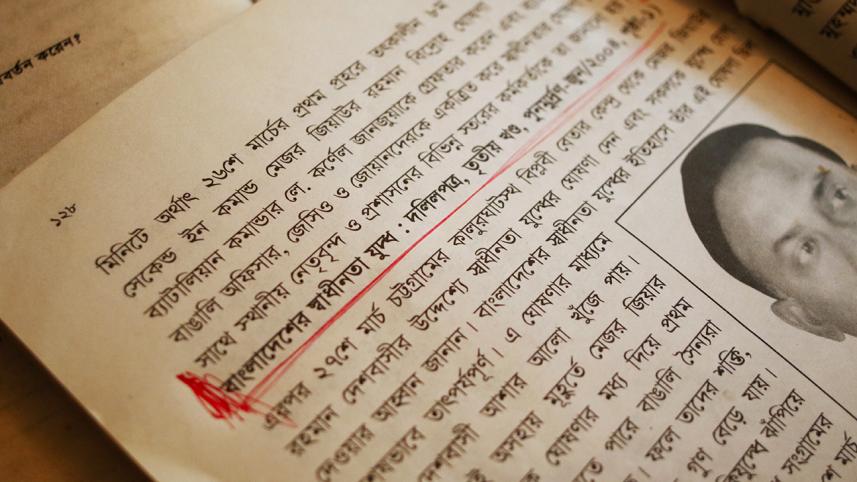 বর্তন করেন?
১২৮
মিনিটে অর্থাৎ ২৬শে মার্চের প্রথম প্রহরে তৎকালীন ৮ম
সেকেন্ড ইন কমান্ড মেজর জিয়াউর রহমান বিদ্রোহ
ব্যাটালিয়ান কমান্ডার লে. কর্ণেল জানজুয়াকে গ্রেফতার করেন এবং
বাঙালি অফিসার, জেসিও ও জোয়ানদেরকে একত্রিত করে স্বাধীনতার
সাথে স্থানীয় নেতৃবৃন্দ ও প্রশাসনের বিভিন্ন স্তরের কর্মকর্তাকে তা
বাংলাদেশের স্বাধীনতা যুদ্ধ : দলিলপত্র, তৃতীয় খণ্ড, পুনর্মুদ্রণ-জুন/২০০৪, পৃষ্ঠা-১)
এরপর ২৭শে মার্চ চট্টগ্রামের কালুরঘাটস্থ বিপ্লবী বেতার কেন্দ্র থেকে মেজর জিয়াউর
রহমান দেশবাসীর উদ্দেশ্যে স্বাধীনতা যুদ্ধের ঘোষণা দেন এবং সকলকে যুদ্ধে
দেওয়ার আহবান জানান। বাংলাদেশের স্বাধীনতা যুদ্ধের ইতিহাসে তাঁর এই ঘোষণা ছিল
ভাবে তাৎপর্যপূর্ণ। এ ঘোষণার মাধ্যমে
দেশবাসী আশার আলো খুঁজে পায়।
অসহায় মুহূর্তে মেজর জিয়ার
ঘোষণার মধ্য দিয়ে প্রথম
তে পারে বাঙালি সৈন্যরা
। ফলে তাদের শক্তি,
গুণ বেড়ে যায়।
ঝাঁপিয়ে
সংগ্রামের